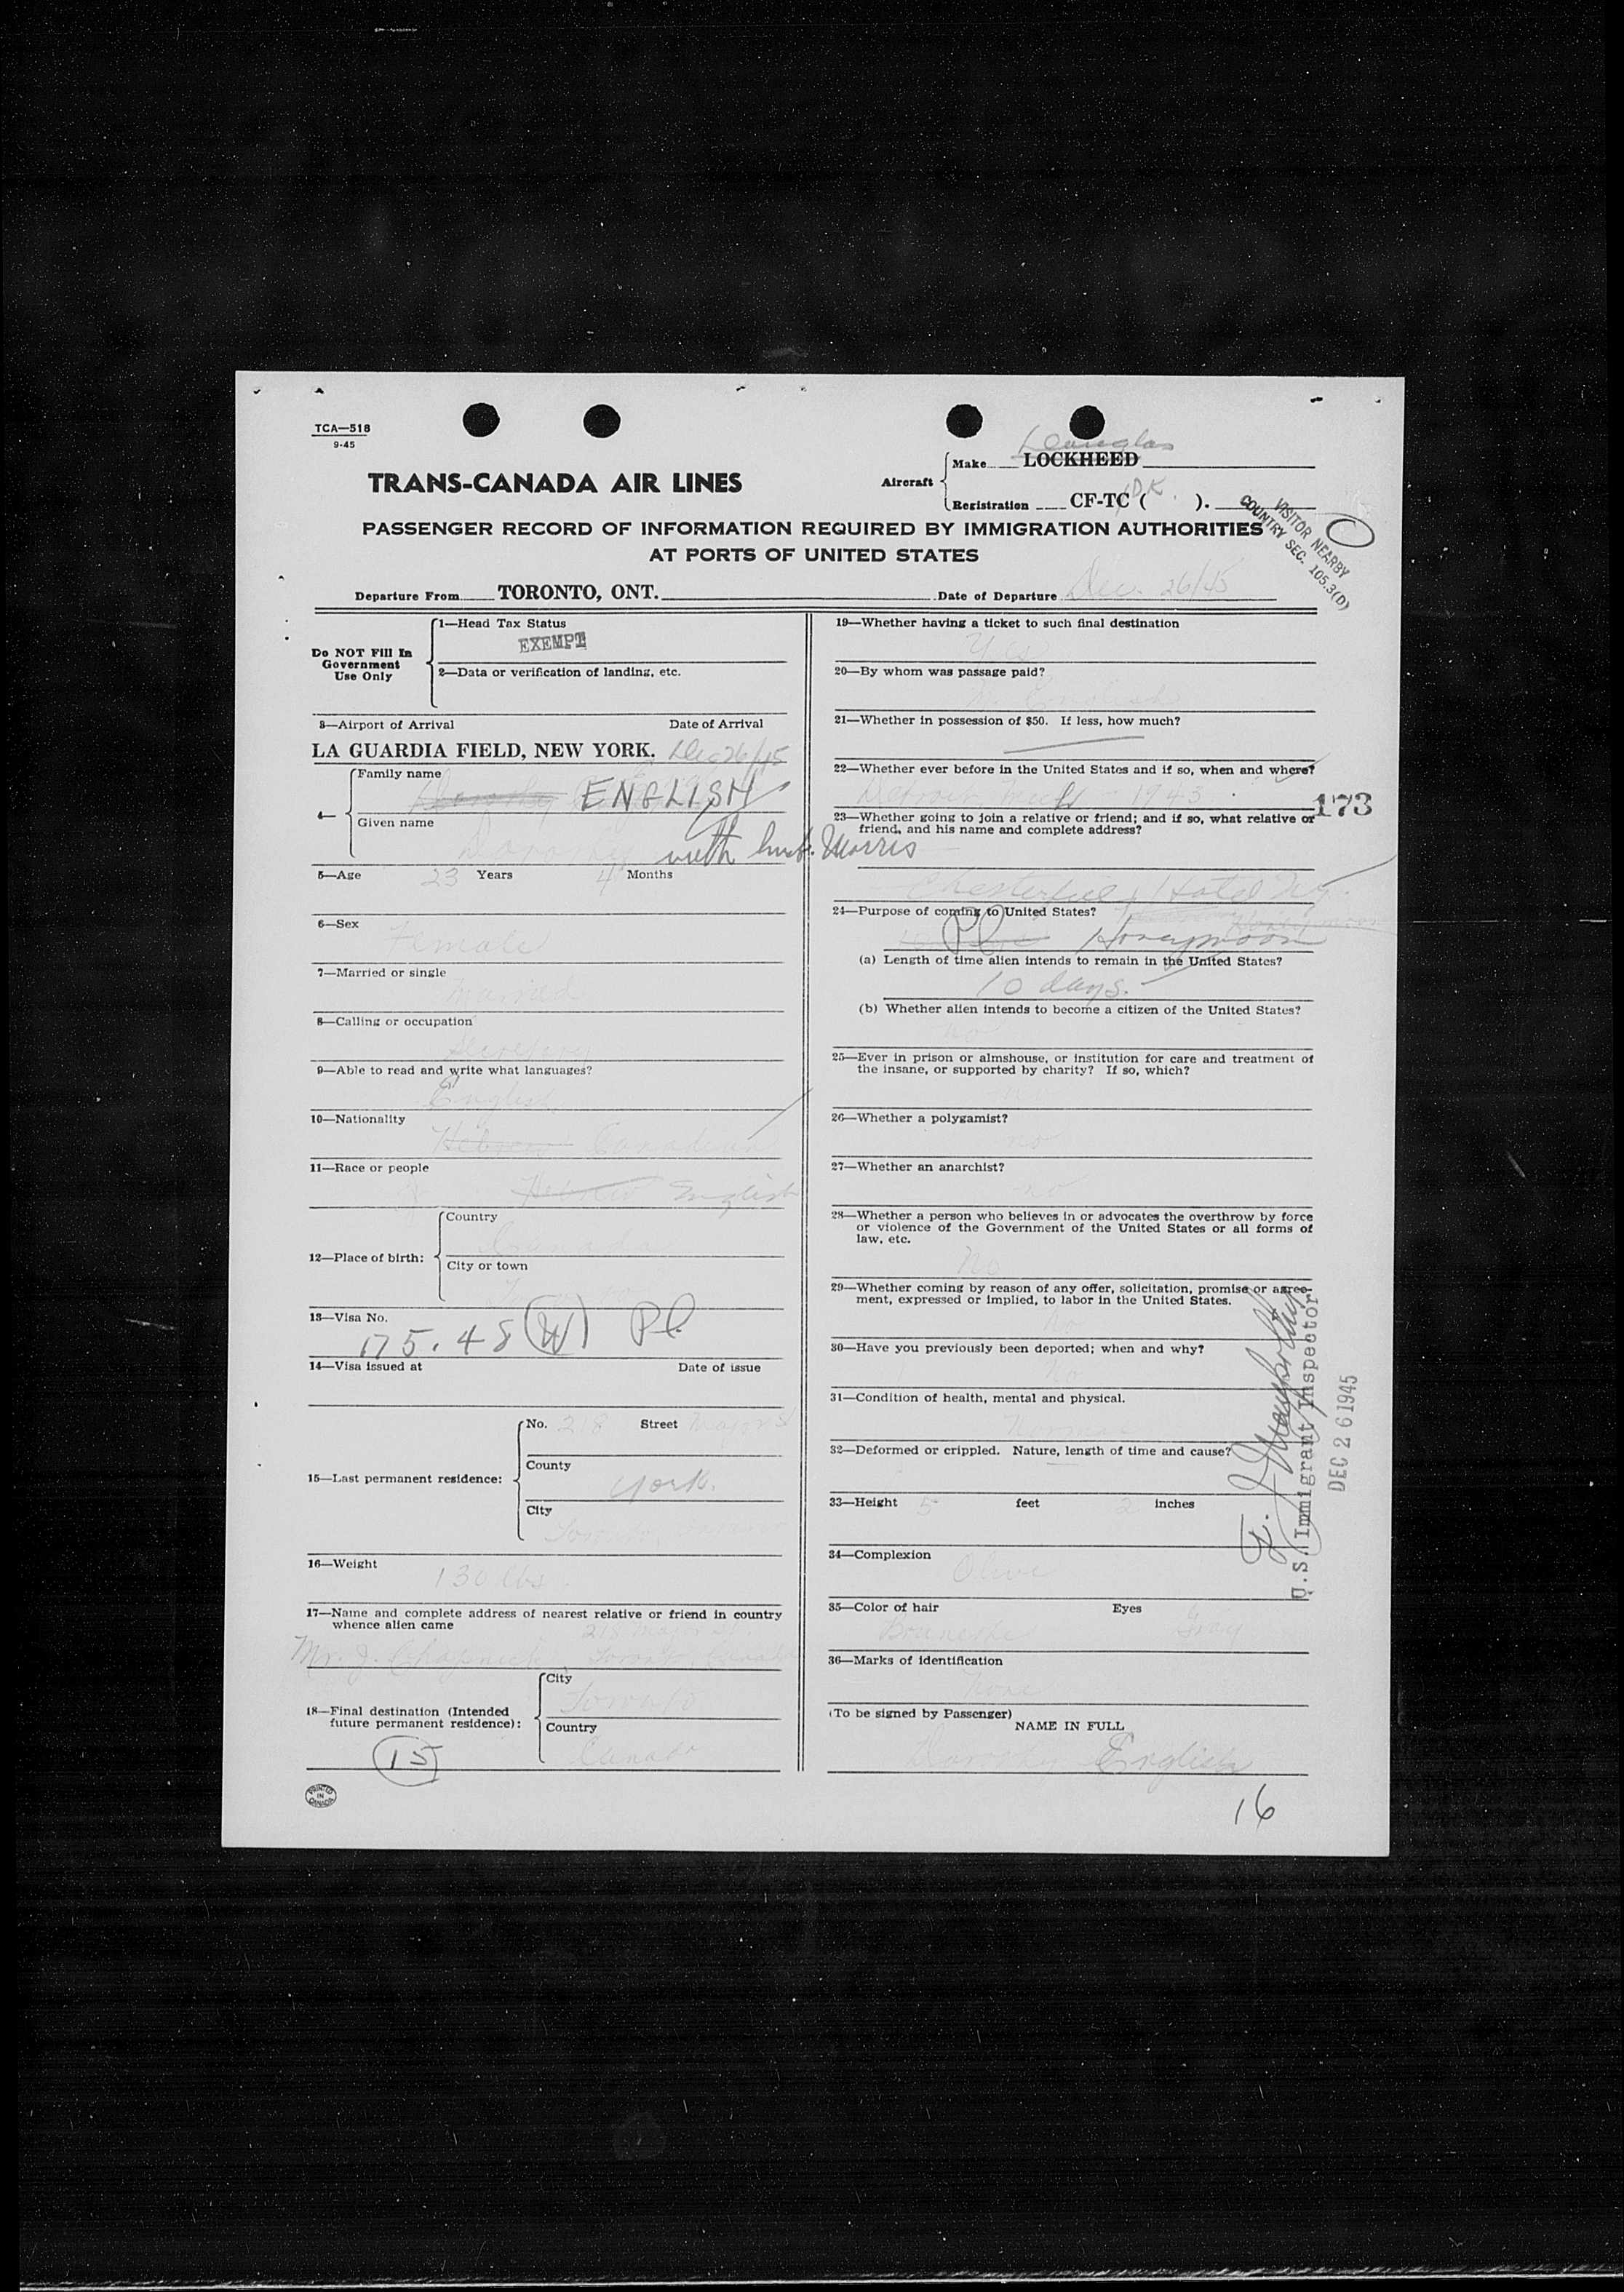 TCA—518
9-45
Douglas
Make LOCKHEED
TRANS-CANADA AIR LINES
Aircraft
Registration CF-TC ( DK ).
VISITOR NEARBY
COUNTRY SEC. 105.3(D)
PASSENGER RECORD OF INFORMATION REQUIRED BY IMMIGRATION AUTHORITIES
AT PORTS OF UNITED STATES
Departure From TORONTO, ONT. Date of Departure Dec. 26/45
Do NOT Fill In
Government
Use Only
1—Head Tax Status
EXEMPT
2—Data or verification of landing, etc.
3—Airport of Arrival Date of Arrival
LA GUARDIA FIELD, NEW YORK. Dec 26/45
4—
Family name
Dorothy ENGLISH
Given name
Dorothy with husb. Morris
5—Age 23 Years 4 Months
6—Sex
Female
7—Married or single
Married
8—Calling or occupation
Secretary
9—Able to read and write what languages?
English
10—Nationality
Hebrew Canadian
11—Race or people
Hebrew English
12—Place of birth:
Country
Canada
City or town
13—Visa No.
175.48 (W) Pl
14—Visa issued at Date of issue
15—Last permanent residence:
No. 218 Street Major St
County
York.
City
Toronto,
16—Weight
130 lbs
17—Name and complete address of nearest relative or friend in country
whence alien came
218 Major St.
Mr. J. Chapnick Toronto, Canada
18—Final destination (Intended
future permanent residence):
City
Toronto
Country
Canada
15
PRINTED
IN
CANADA
19—Whether having a ticket to such final destination
Yes
20—By whom was passage paid?
English
21—Whether in possession of $50. If less, how much?
22—Whether ever before in the United States and if so, when and where?
Detroit, Mich - 1943
173
23—Whether going to join a relative or friend; and if so, what relative or
friend, and his name and complete address?
Chesterfield Hotel N.Y.
24—Purpose of coming to United States?
Honeymoon
Pl Honeymoon
(a) Length of time alien intends to remain in the United States?
10 days.
(b) Whether alien intends to become a citizen of the United States?
no
25—Ever in prison or almshouse, or institution for care and treatment of
the insane, or supported by charity? If so, which?
no
26—Whether a polygamist?
no
27—Whether an anarchist?
no
28—Whether a person who believes in or advocates the overthrow by force
or violence of the Government of the United States or all forms of
law, etc.
No
29—Whether coming by reason of any offer, solicitation, promise or agree-
ment, expressed or implied, to labor in the United States.
No
30—Have you previously been deported; when and why?
No
31—Condition of health, mental and physical.
Normal
32—Deformed or crippled. Nature, length of time and cause?
33—Height 5 feet 2 inches
34—Complexion
Olive
35—Color of hair Eyes
Brunette Gray
36—Marks of identification
None
(To be signed by Passenger)
NAME IN FULL
Dorothy English
U.S. Immigrant Inspector
DEC 26 1945
16